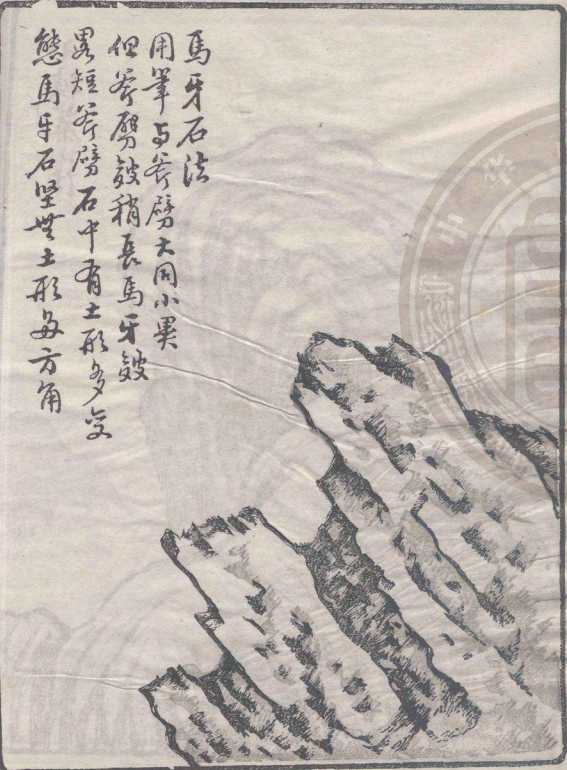 馬牙石法
用筆与斧劈大同小異
但斧劈皴稍長馬牙皴
畧短斧劈石中有土形多变
態馬牙石堅無土形每方角